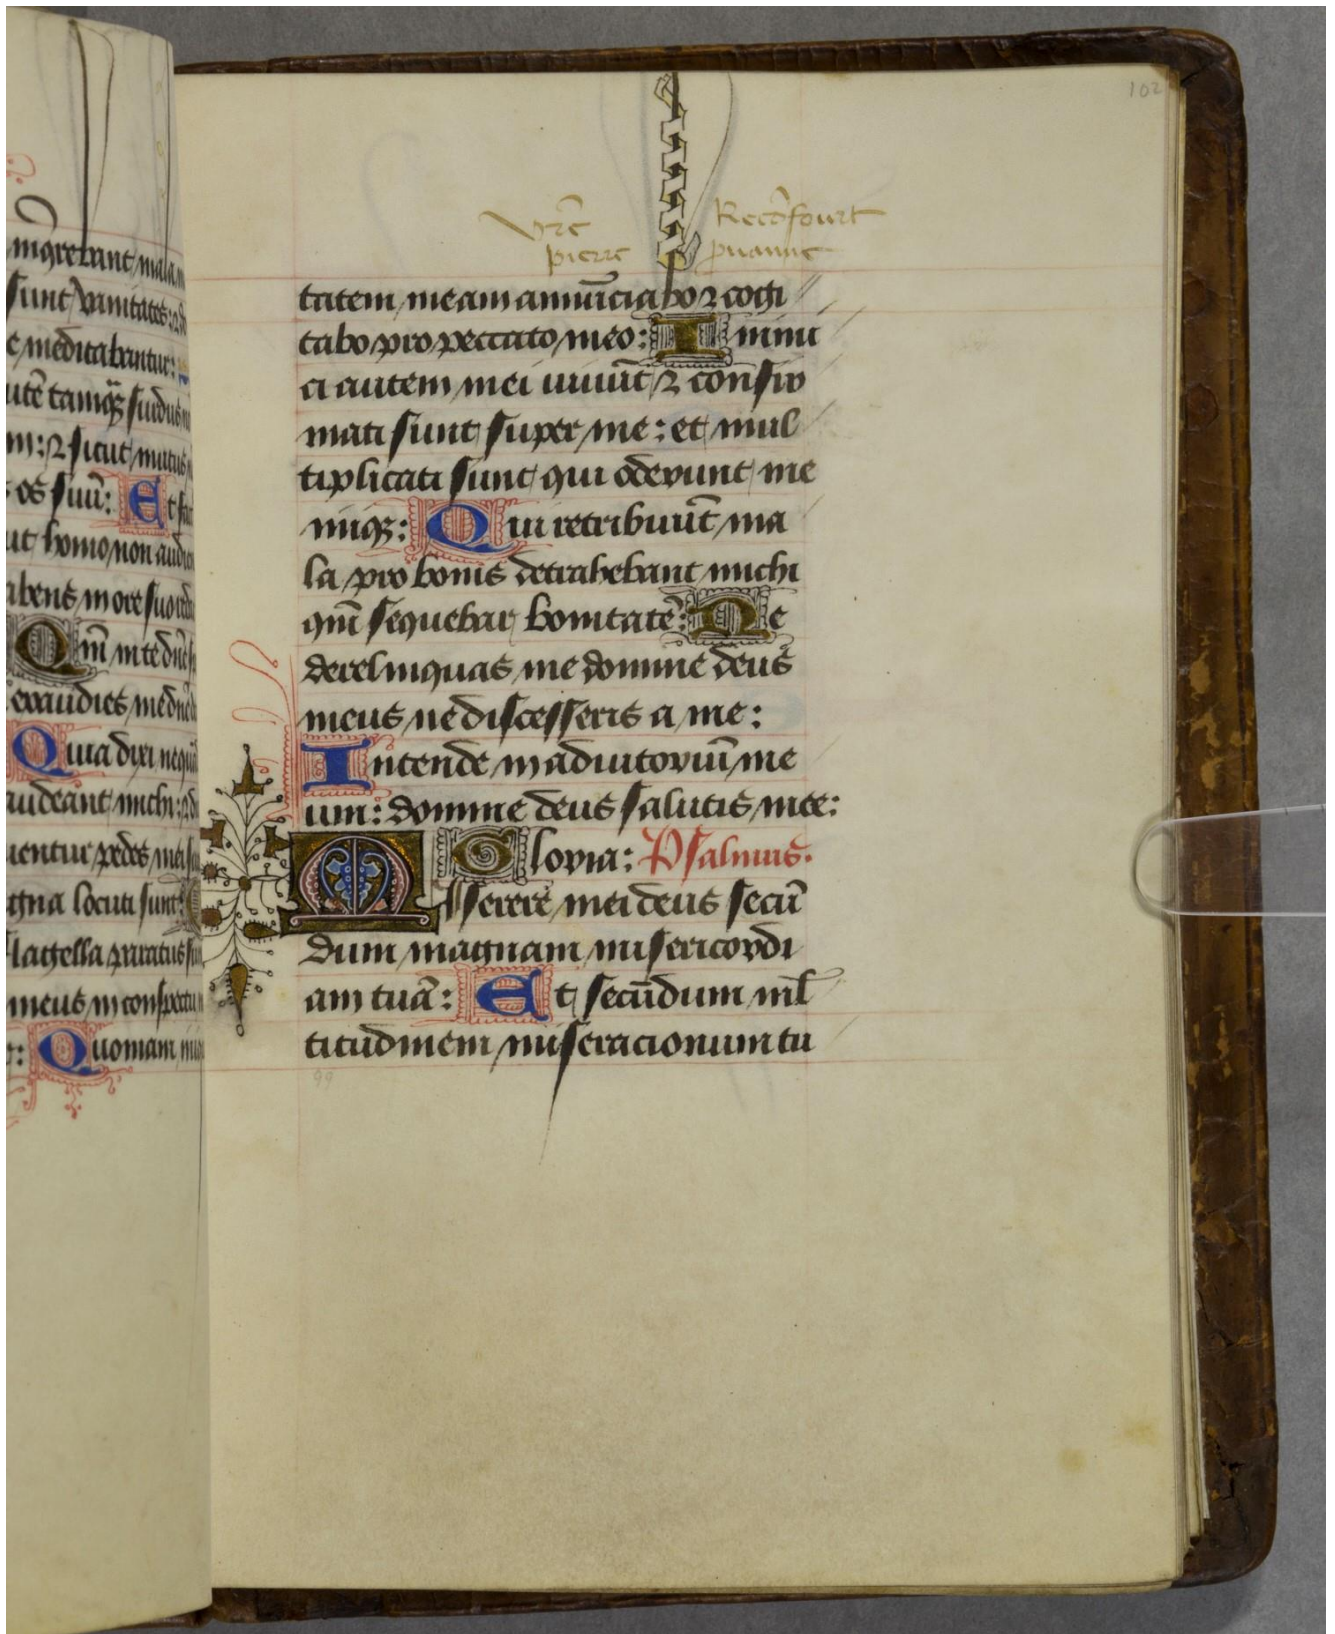 mqrebant mala
sunt vanitates: ⁊
e meditabantur:
utē tamqȝ surdus
m: ⁊ sicut mutus
os suū: Et fac
ut homo non audi
abens in ore suo
Qm̄ in te dn̄e
exaudies me dn̄e
Quia dixi neq̄
audeant michi: ⁊
uentur pedes mei
agna locuti sunt:
flagella paratus
meus in conspectu
Quoniam
102
vr̄e Recōfourt
pierre
tatem meam annūciabo ⁊ cogi
tabo pro peccato meo: Inimi
ci autem mei uiuūt ⁊ confir
mati sunt super me: et mul
tiplicati sunt qui oderunt me
iniqȝ: Qui retribuūt ma
la pro bonis detrahebant michi
qm̄ sequebar bonitatē: Ne
derelinquas me domine deus
meus ne discesseris a me:
Intende in adiutoriū me
um: domine deus salutis mee:
Gloria: Psalmus.
Miserere mei deus secū
dum magnam misericordi
am tuā: Et secūdum ml̄
titudinem miseracionum tu
99